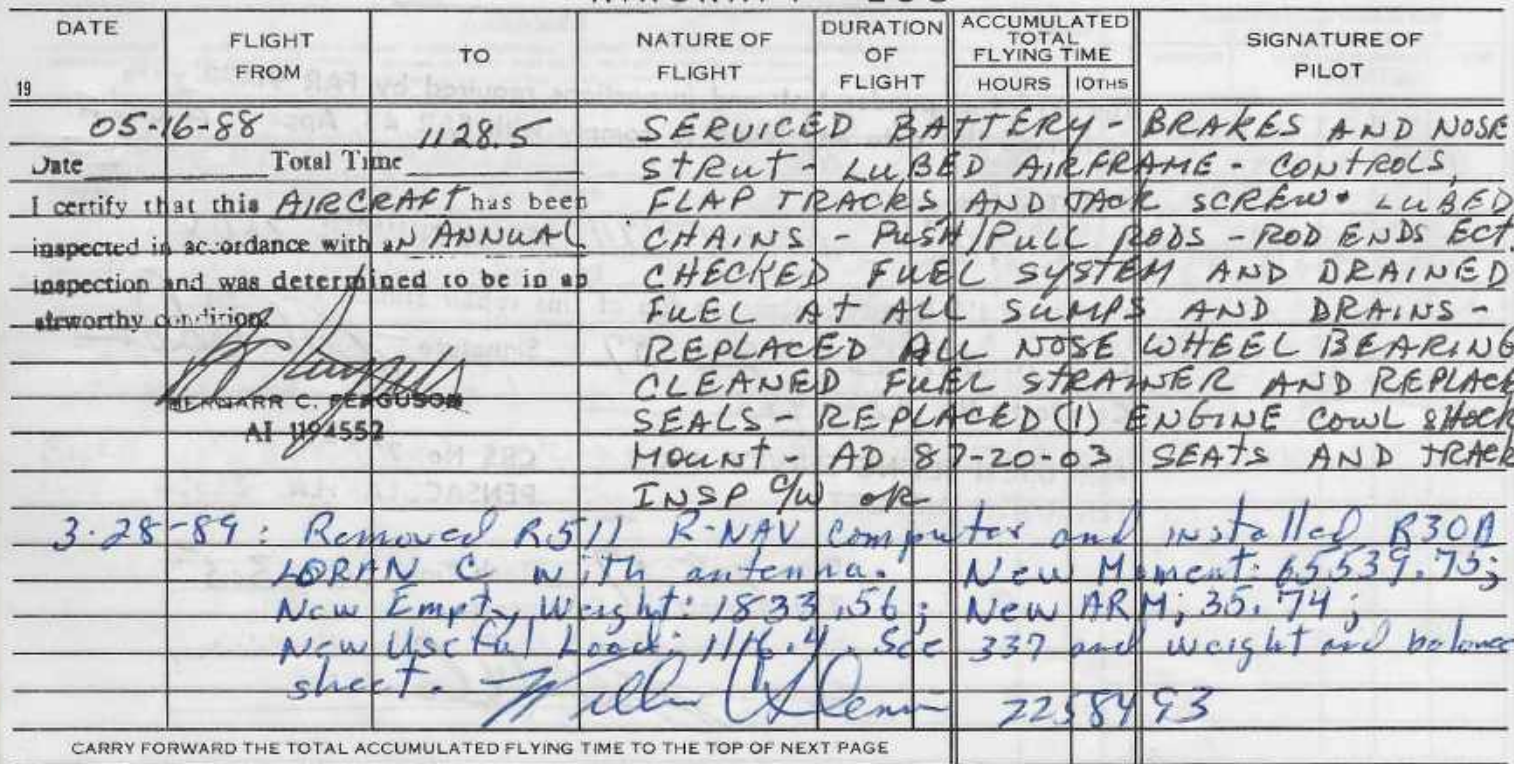 DATE FLIGHT FROM TO NATURE OF FLIGHT DURATION OF FLIGHT ACCUMULATED TOTAL FLYING TIME HOURS 10THS SIGNATURE OF PILOT
19
05-16-88 1128.5
Date Total Time
I certify that this AIRCRAFT has been
inspected in accordance with aN ANNUAL
inspection and was determined to be in an
airworthy condition.
BERNARR C. FERGUSON
AI 1194552
SERVICED BATTERY - BRAKES AND NOSE
STRUT - LUBED AIRFRAME - CONTROLS,
FLAP TRACKS, AND JACK SCREW. LUBED
CHAINS - PUSH/PULL RODS - ROD ENDS ECT.
CHECKED FUEL SYSTEM AND DRAINED
FUEL AT ALL SUMPS AND DRAINS -
REPLACED ALL NOSE WHEEL BEARING
CLEANED FUEL STRAINER AND REPLACE
SEALS - REPLACED (1) ENGINE COWL SHOCK
MOUNT - AD 87-20-03 SEATS AND TRACK
INSP C/W OK
3-28-89: Removed R511 R-NAV computer and installed R30A
LORAN C with antenna. New Moment: 65539.75;
New Empty Weight: 1833.56; New ARM; 35.74;
New Useful Load: 1116.4. See 337 and weight and balance
sheet. 2258493
CARRY FORWARD THE TOTAL ACCUMULATED FLYING TIME TO THE TOP OF NEXT PAGE